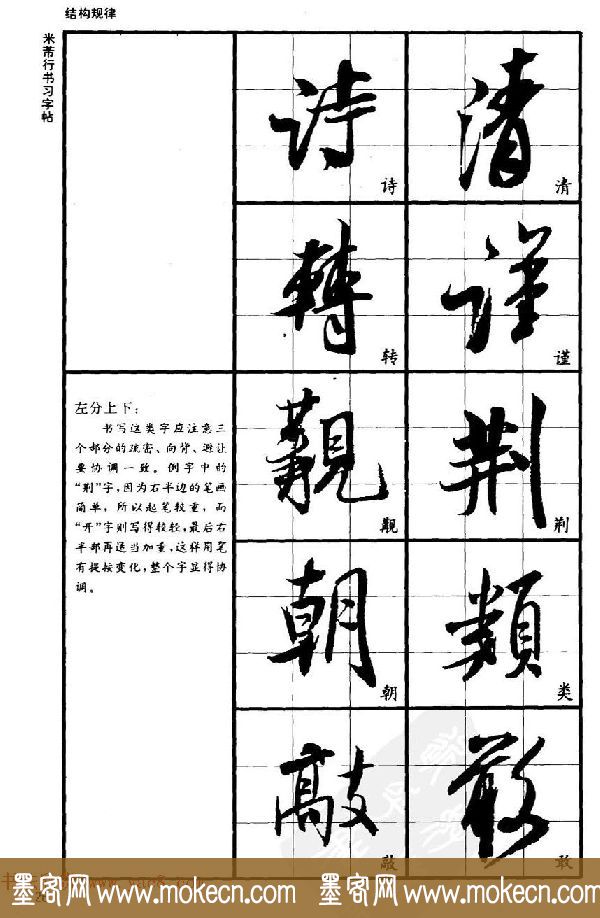 结构规律
米芾行书习字帖
清
诗
謹
谨
轉
转
荆
荆
觐
類
类
朝
朝
敢
敢
敲
敲
左分上下：
书写这类字应注意三
个部分的疏密、向背、避让
要协调一致。例字中的
“荆”字，因为右半边的笔画
简单，所以起笔较重，而
“开”字则写得较轻，最后右
半部再适当加重，这样用笔
有提按变化，整个字显得协
调。
墨客网 www.mokecn.com 墨客网 www.mokecn.com